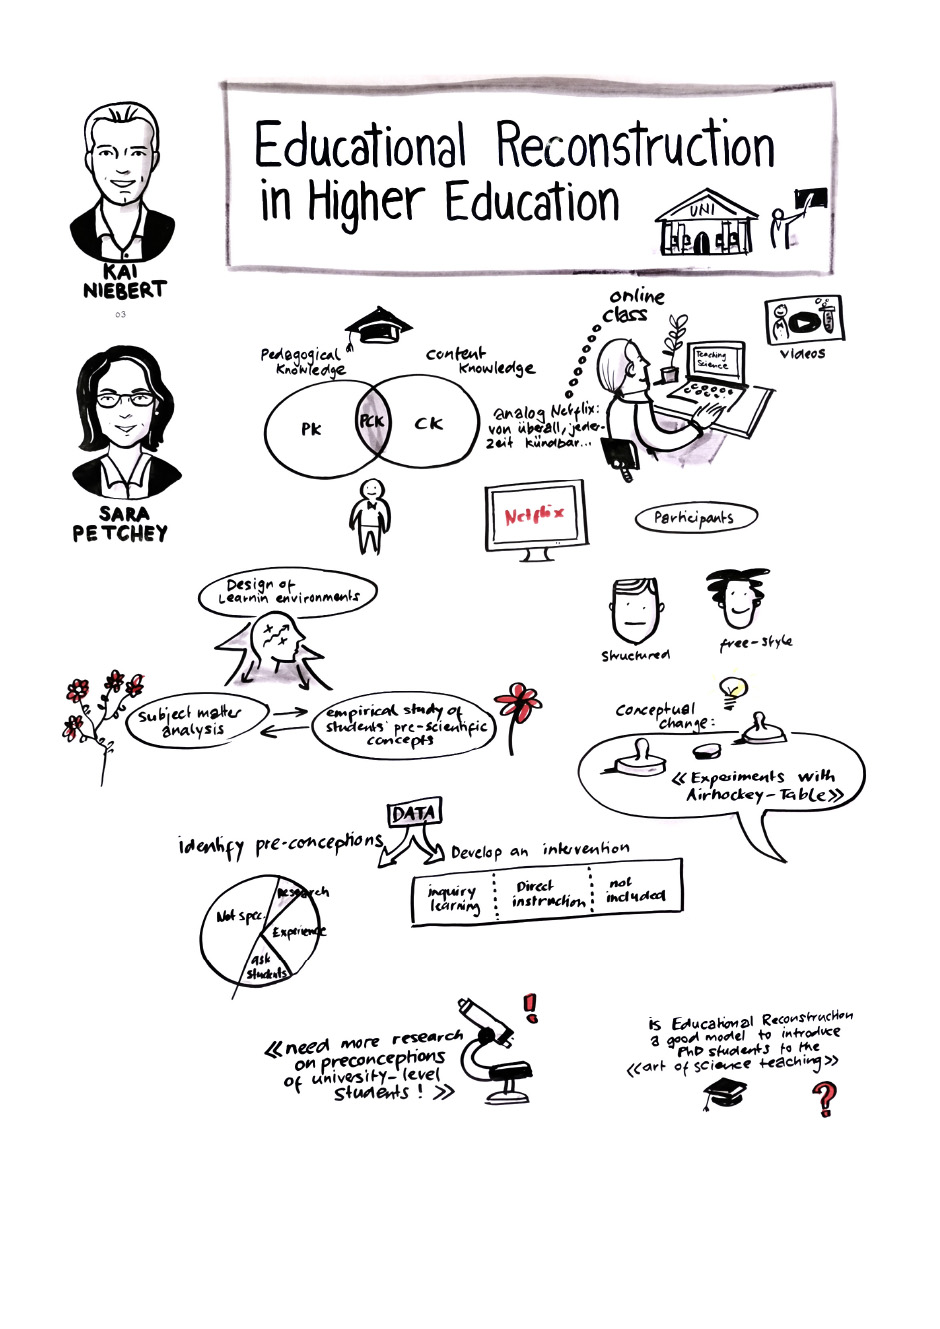 Educational Reconstruction
in Higher Education
UNI
KAI
NIEBERT
03
SARA
PETCHEY
Pedagogical
Knowledge
Content
Knowledge
PK
PCK
CK
online
class
Teaching
Science
videos
analog Netflix:
von überall, jeder-
zeit kündbar...
Netflix
Participants
Structured
free-style
Design of
Learnin environments
subject matter
analysis
empirical study of
students' pre-scientific
concepts
conceptual
change:
«Experiments with
Airhockey-Table»
DATA
identify pre-conceptions
Develop an intervention
Not spec.
Research
Experience
ask
students
inquiry
learning
Direct
instruction
not
included
«need more research
on preconceptions
of university-level
students! »
!
is Educational Reconstruction
a good model to introduce
PhD students to the
«art of science teaching»
?